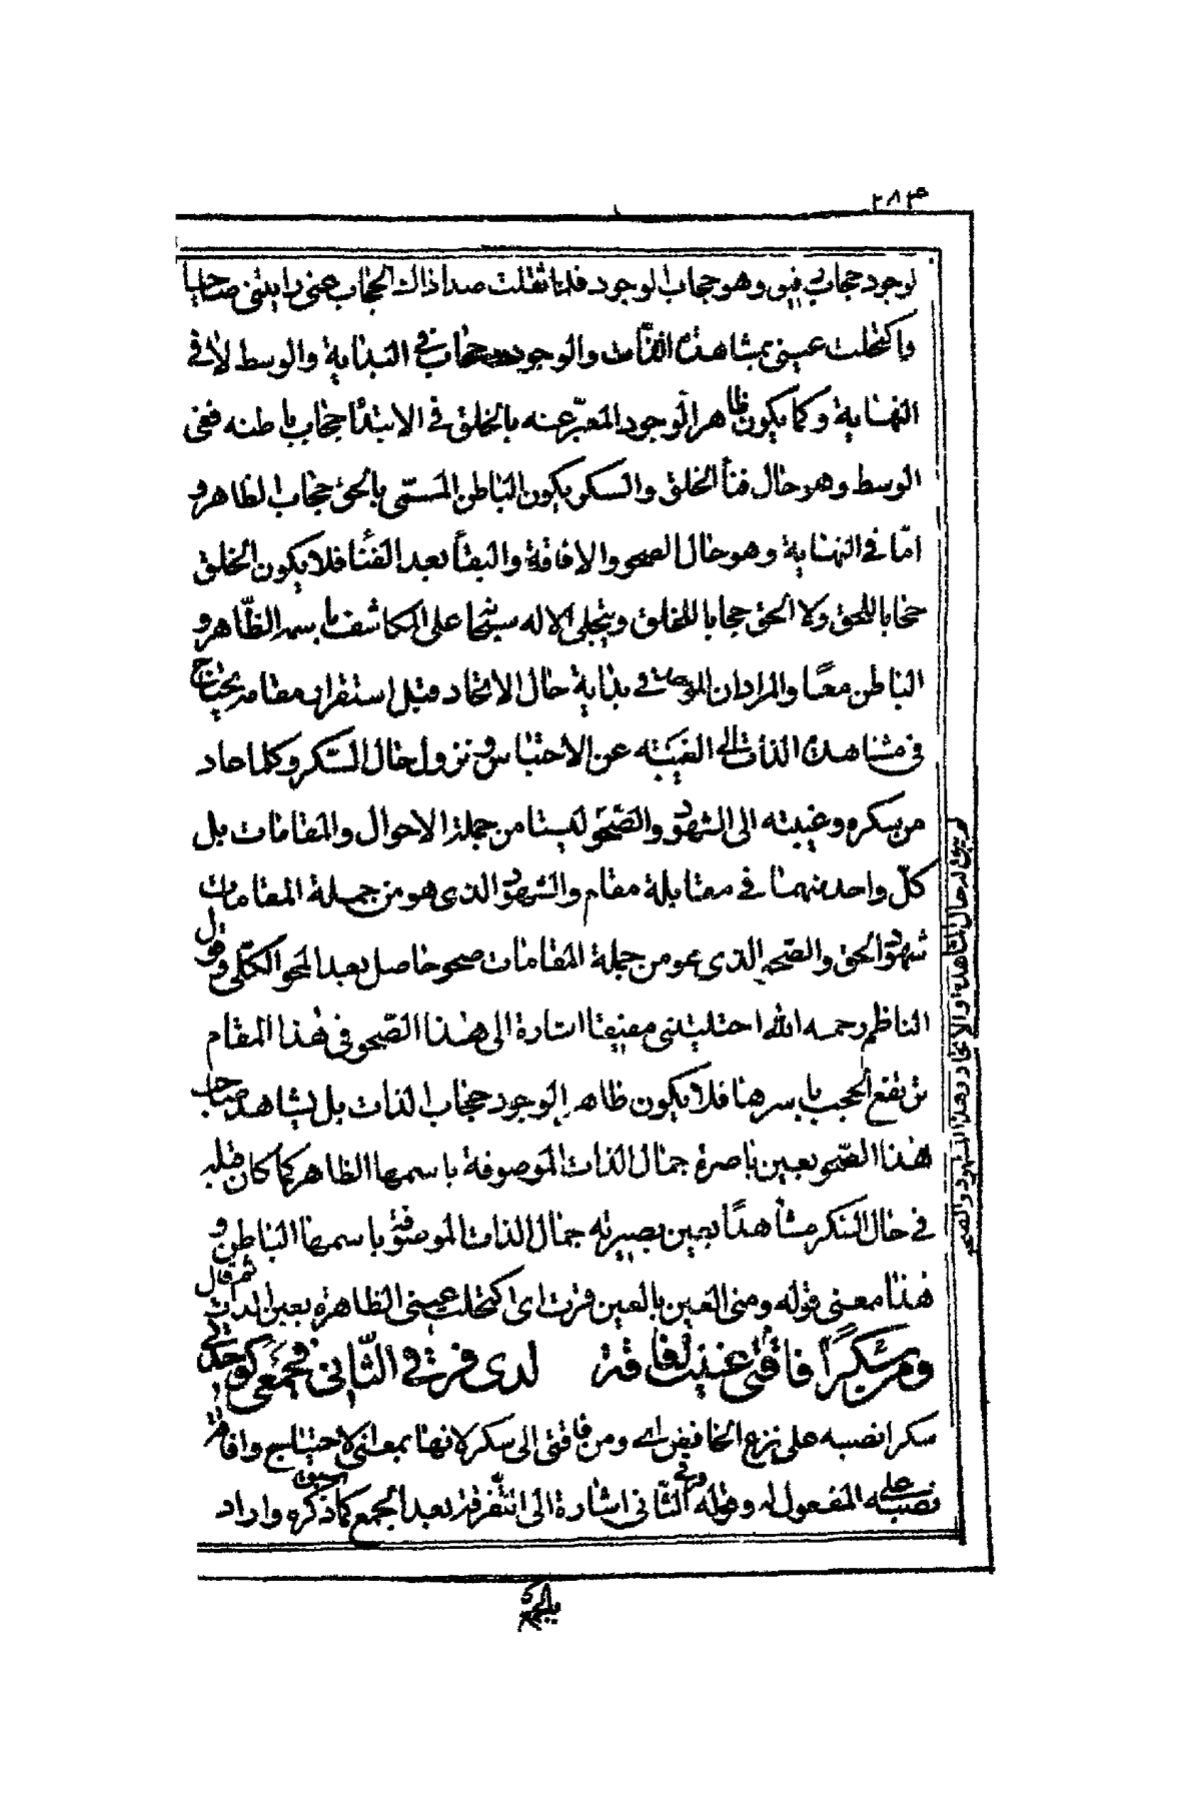 ٢٨٣
لوجود حجاب وهو حجاب الوجود فلما ثقلت صدا ذاك الحجاب عنى رايتنى صاحيا
واكتحلت عينى بمشاهدة الذات والوجود حجاب فى البداية والوسط لا فى
النهاية وكما يكون ظاهر الوجود المعبّر عنه بالخلق فى الابتدا حجاب باطنه ففى
الوسط وهو حال فنأ الخلق والسكر يكون الباطن المسمّى بالحق حجاب الظاهر و
امّا فى النهاية وهو حال الصحو والافاقة والبقأ بعد الفنأ فلا يكون الخلق
حجابا للحق ولا الحق حجابا للخلق ويتجلى الاله على المكاشف باسمه الظّاهر و
الباطن معًا والمراد ان فى بداية حال الاتحاد قبل استقرار مقامه يحتاج
فى مشاهدة الذات الى الغيبته عن الاحساس ونزول حال السّكر وكلما عاد
من سكره وغيبته الى الشهود والصّحو ليستا من جملة الاحوال والمقامات بل
كلّ واحد منهما فى مقابلة مقام والشهود الذى هو من جملة المقامات
شهود الحق والصّحو الذى هو من جملة المقامات صحو حاصل بعد المحو الكلّى وقول
الناظم رحمه الله اجتليتنى مفيقا اشارة الى هذا الصّحو فى هذا المقام
ترتفع الحجب باسرها فلا يكون ظاهر الوجود حجاب الذات بل يشاهد صاحب
هذا الصّحو بعين باصرة جمال الذات الموصوفة باسمها الظاهر كما كان قلبه
فى حال السّكر مشاهدًا بعين بصيرته جمال الذات الموصوفة باسمها الباطن و
هذا معنى قوله ومنى العين بالعين قرت اى اكتحلت عينى الظاهرة بعين الذات ثم قال
ومن سكرًا فاقتى غنيت لفاقة لدى فرت فى الثّانى فجمعى كوحدتى
سكرا نصبه على نزع الخافض اى ومن فاقتى الى سكر لانها بمعنى الاحتياج وافاقة
نصبه على المفعول له وقوله وفى الثّانى اشارة الى التّفرقة بعد الجمع كما ذكره واراد
لم يبق له حال المشاهدة والاتحاد وهذا الشهود والصحو
بالجمع